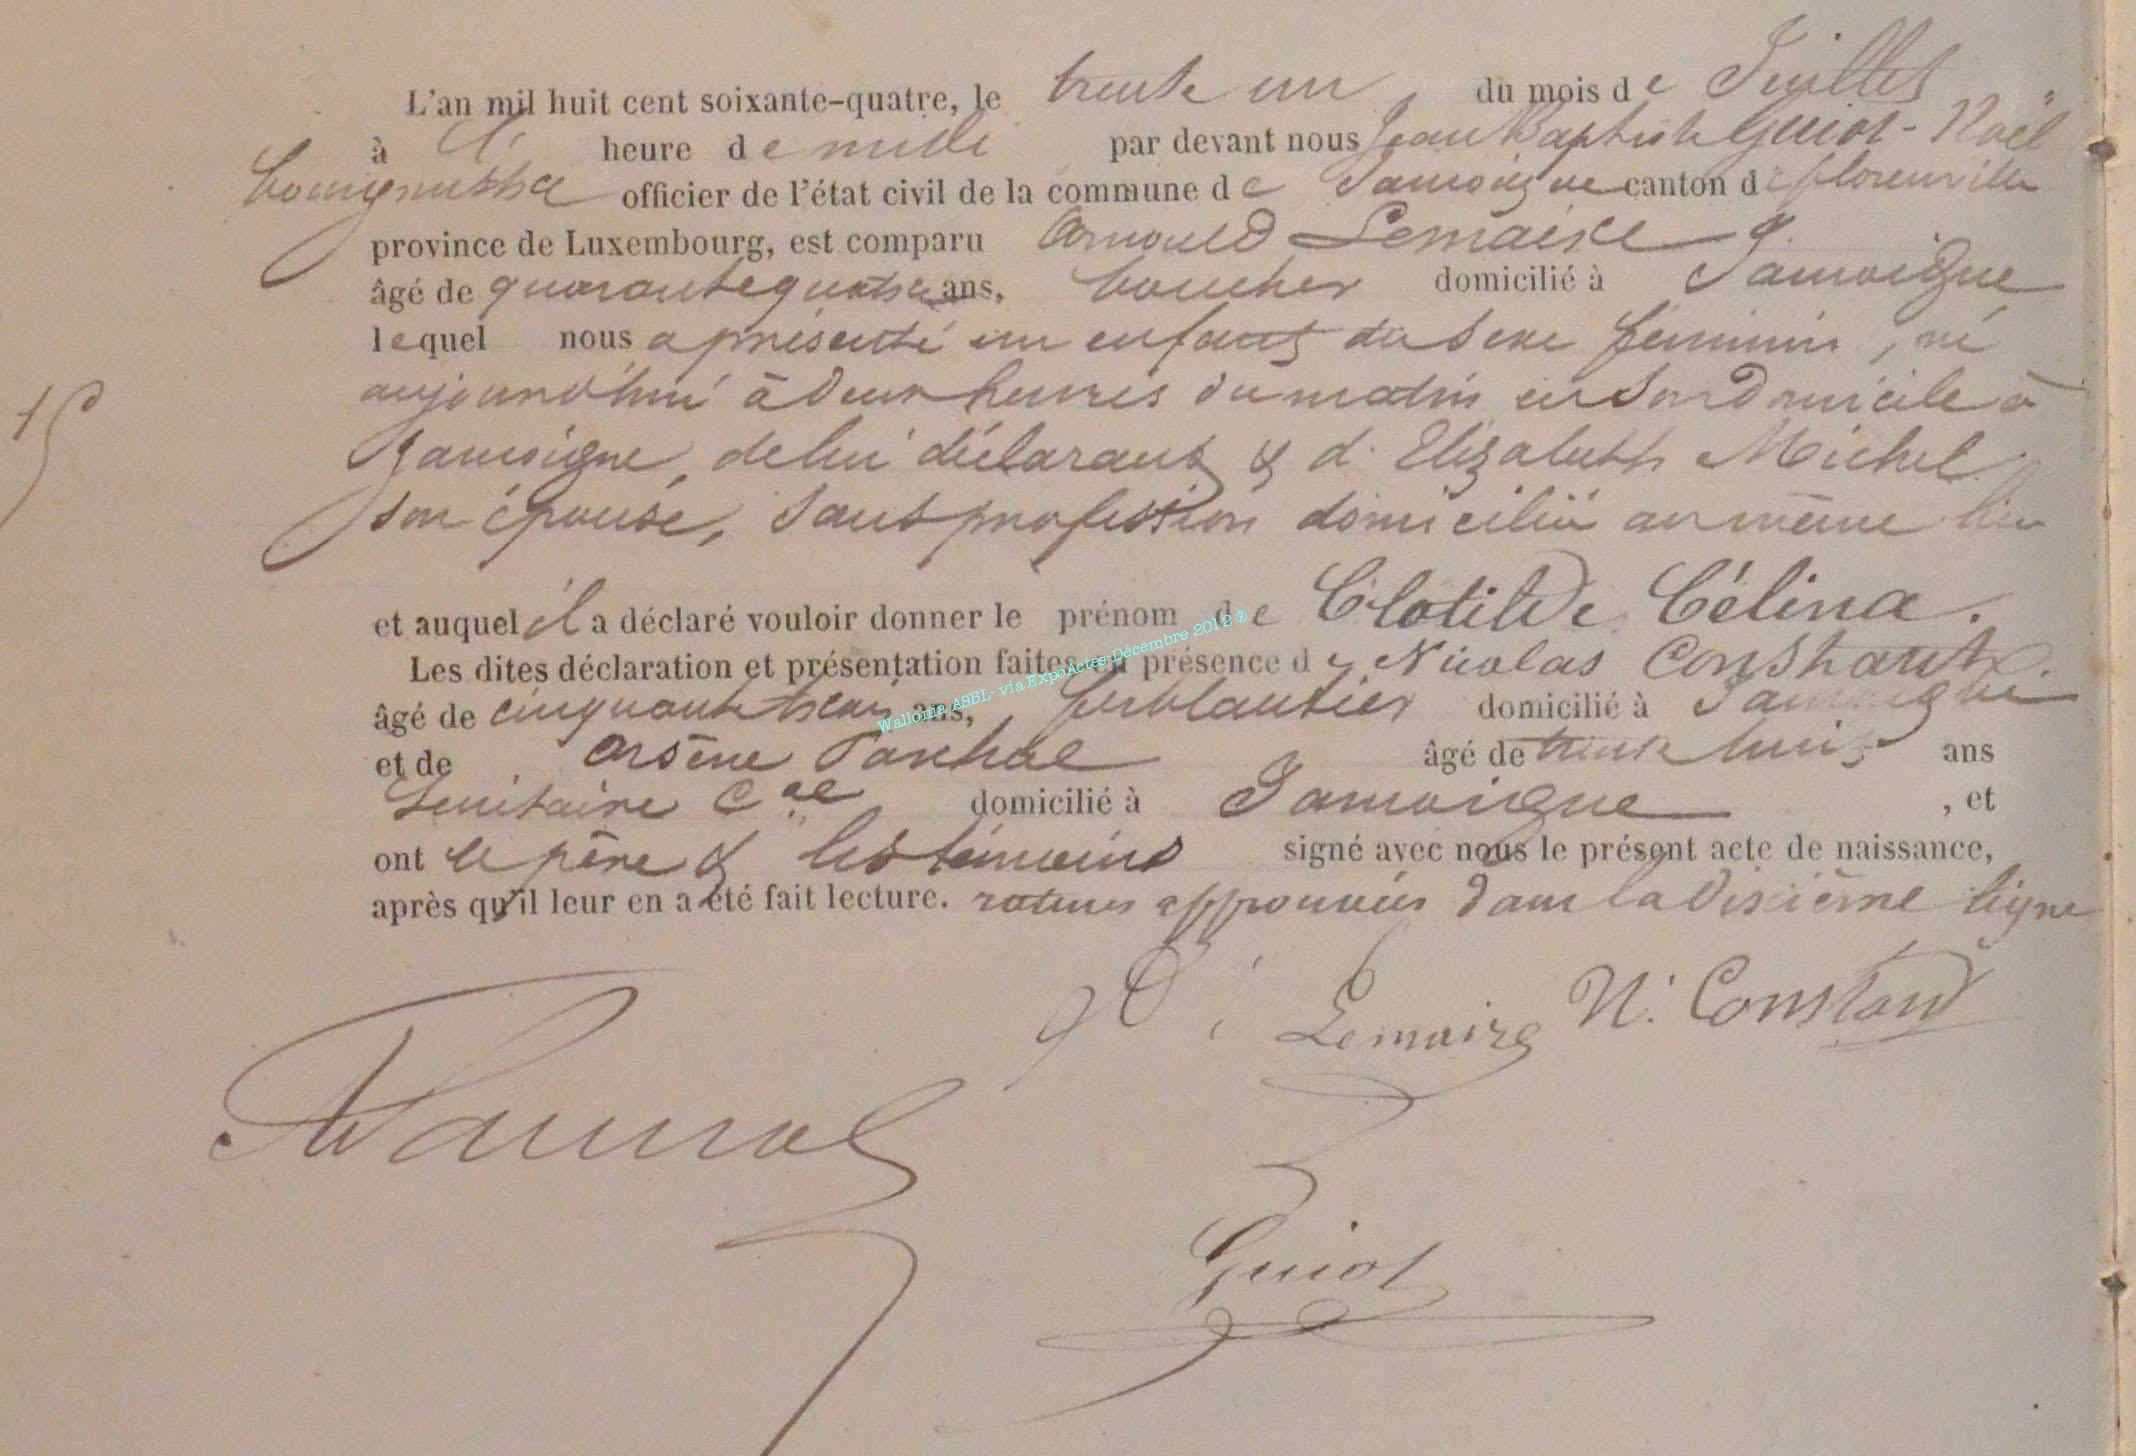 L'an mil huit cent soixante-quatre, le trente un du mois de Juillet
à heure de midi par devant nous Jean Baptiste Guiot-Noël
bourgmestre officier de l'état civil de la commune de Jamoigne canton de florenville
province de Luxembourg, est comparu Arnould Lemaire
âgé de quarante quatre ans, boucher domicilié à Jamoigne
lequel nous a présenté un enfant du sexe féminin, né
aujourd'hui à deux heures du matin en son domicile à
Jamoigne, de lui déclarant & d' Elizabeth Michel
son épouse, sans profession domiciliée au même lieu
et auquel il a déclaré vouloir donner le prénom de Clotilde Célina.
Les dites déclaration et présentation faites en présence de Nicolas Constant
âgé de cinquante trois ans, ferblantier domicilié à Jamoigne
et de Arsène âgé de trente huit ans
Secrétaire Cal domicilié à Jamoigne, et
ont le père & les témoins signé avec nous le présent acte de naissance,
après qu'il leur en a été fait lecture. ratures approuvées dans la dixième ligne
Lemaire N. Constant
Guiot
15
Wallonia ASBL- via ExpoActes Décembre 2012 ®